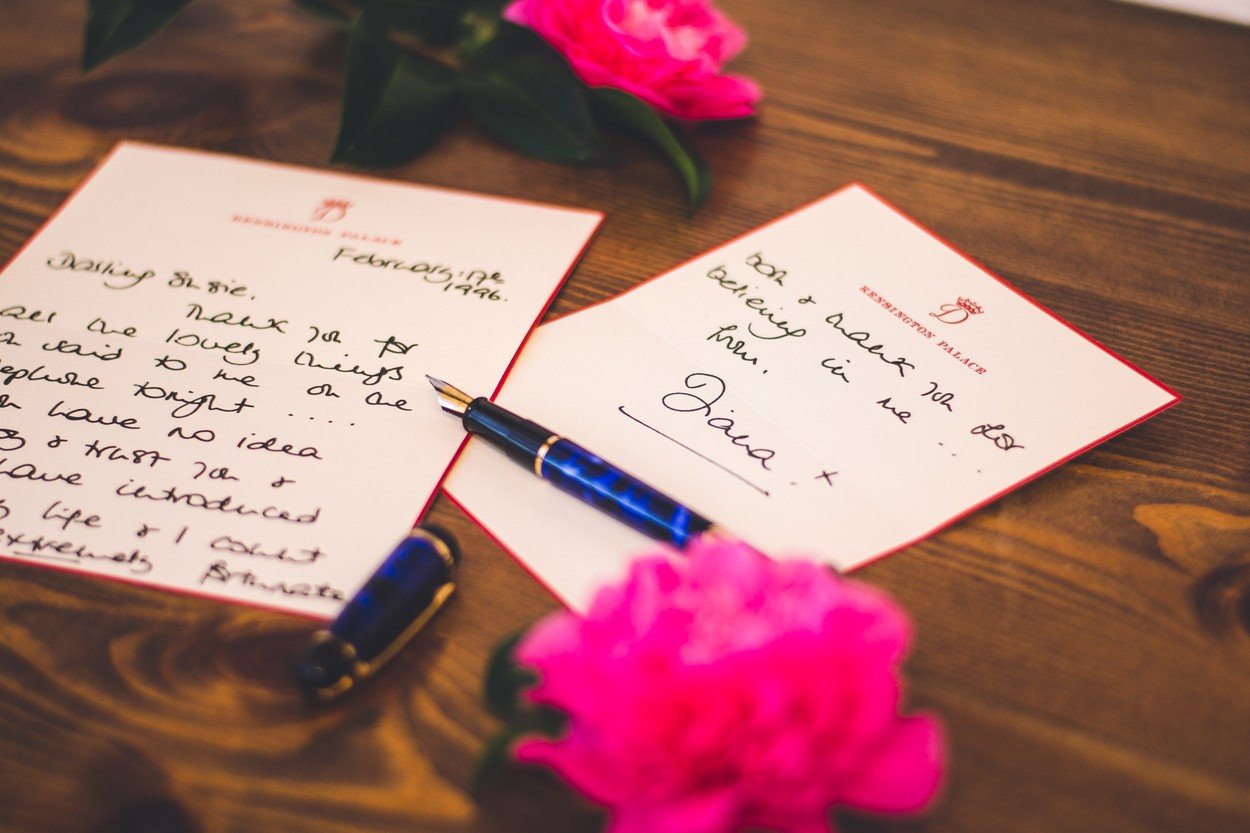 D
KENSINGTON PALACE
February: 17th
1996.
Darling Susie,
Thank you for
all the lovely things
said to me on the
tonight ....
have no idea
& trust you &
have introduced
life & I count
extremely fortunate
D
KENSINGTON PALACE
both & thank you for
believing in me ...
from,
Diana. x